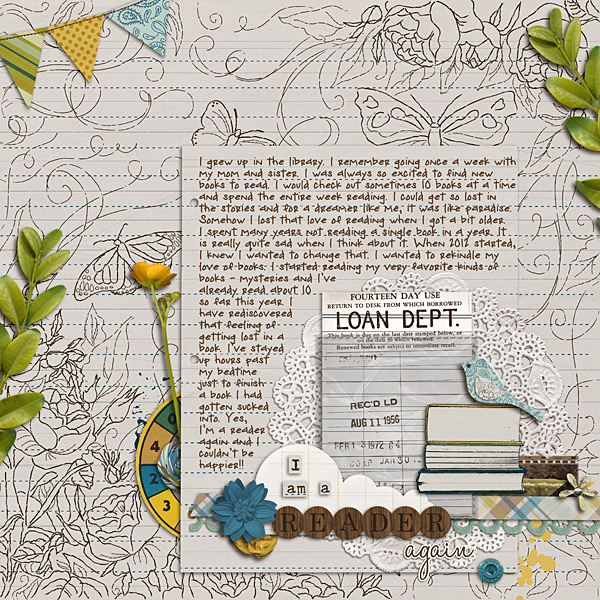 I grew up in the library. I remember going once a week with
my mom and sister. I was always so excited to find new
books to read. I would check out sometimes 10 books at a time
and spend the entire week reading. I could get so lost in
the stories and for a dreamer like me, it was like paradise.
Somehow I lost that love of reading when I got a bit older.
I spent many years not reading a single book in a year. It
is really quite sad when I think about it. When 2012 started,
I knew I wanted to change that. I wanted to rekindle my
love of books. I started reading my very favorite kinds of
books - mysteries and I've
already read about 10
so far this year. I
have rediscovered
that feeling of
getting lost in a
book. I've stayed
up hours past
my bedtime
just to finish
a book I had
gotten sucked
into. Yes,
I'm a reader
again and I
couldn't be
happier!!
FOURTEEN DAY USE
RETURN TO DESK FROM WHICH BORROWED
LOAN DEPT.
This book is due on the last date stamped below, or
on the date to which renewed.
Renewed books are subject to immediate recall.
REC'D LD
AUG 11 1956
FEB 1972
JAN 30
4
0
2
3
I
am a
READER
again